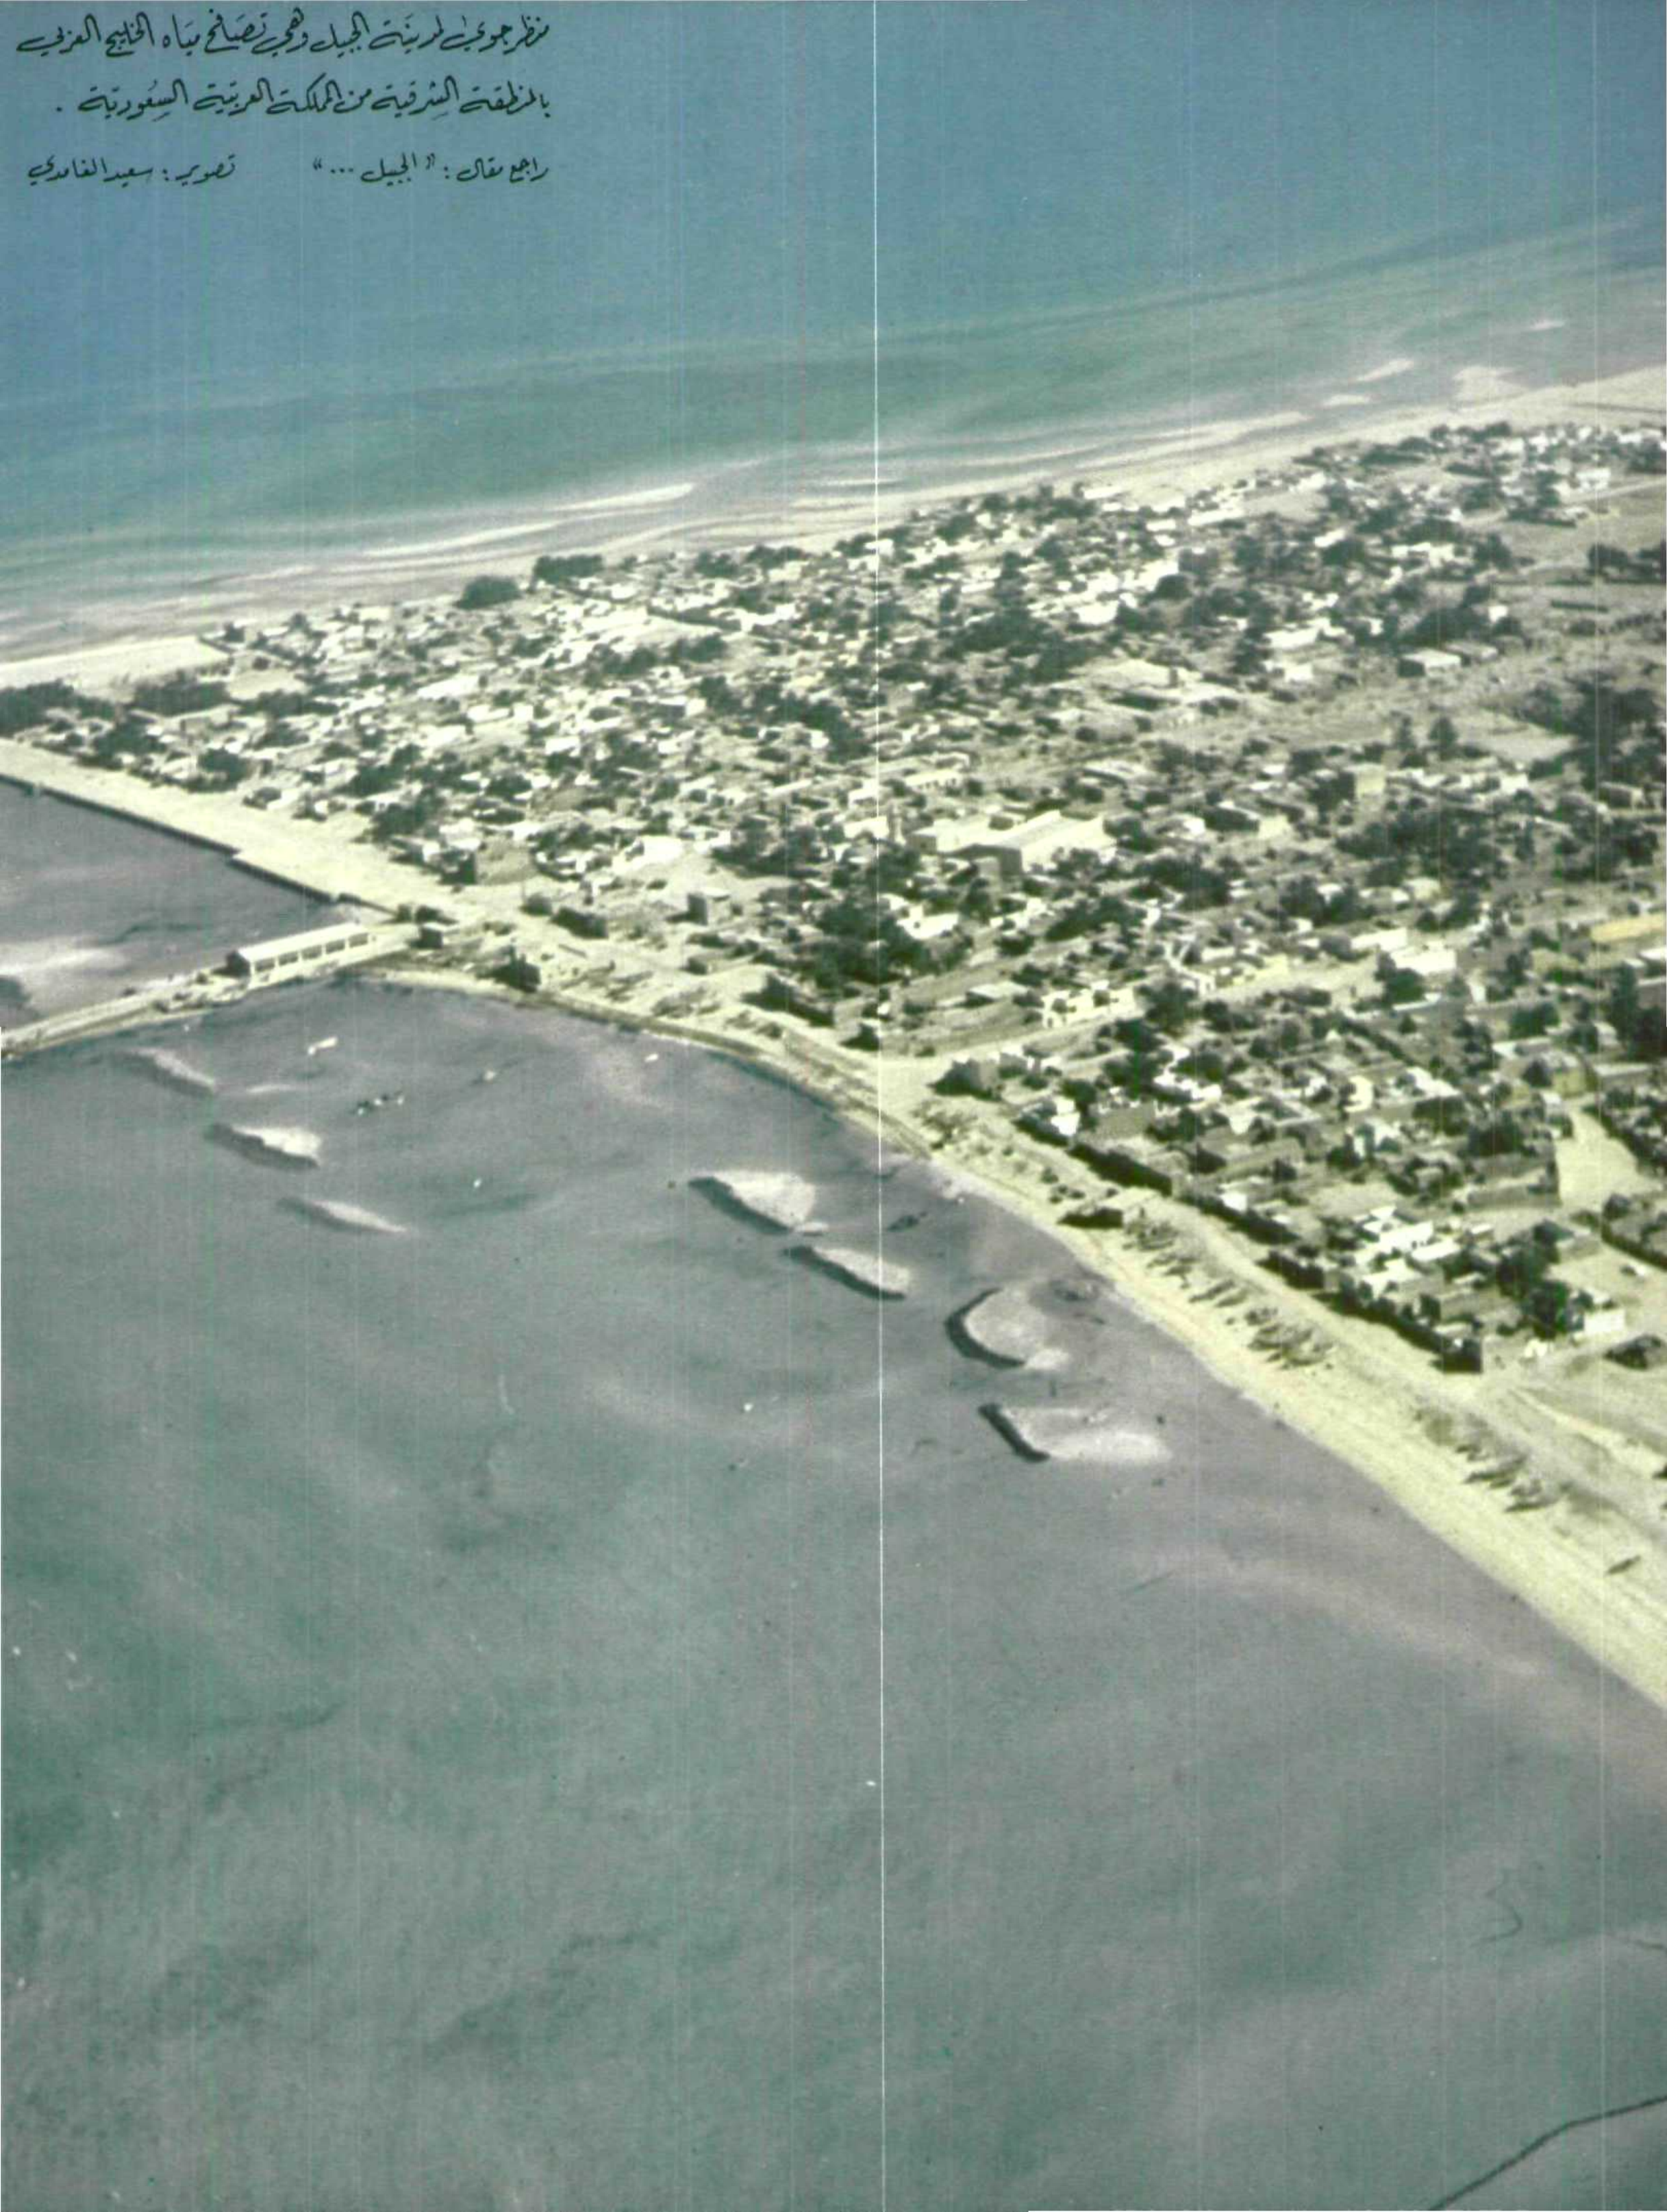 منظر جوي لمدينة الجبيل وهي تصَافح ميَاه الخليج العربي
بالمنطقة الشرقية من المملكة العربية السعُودية .
راجع مقال : "الجبيل ..." تصوير : سعيد الغامدي